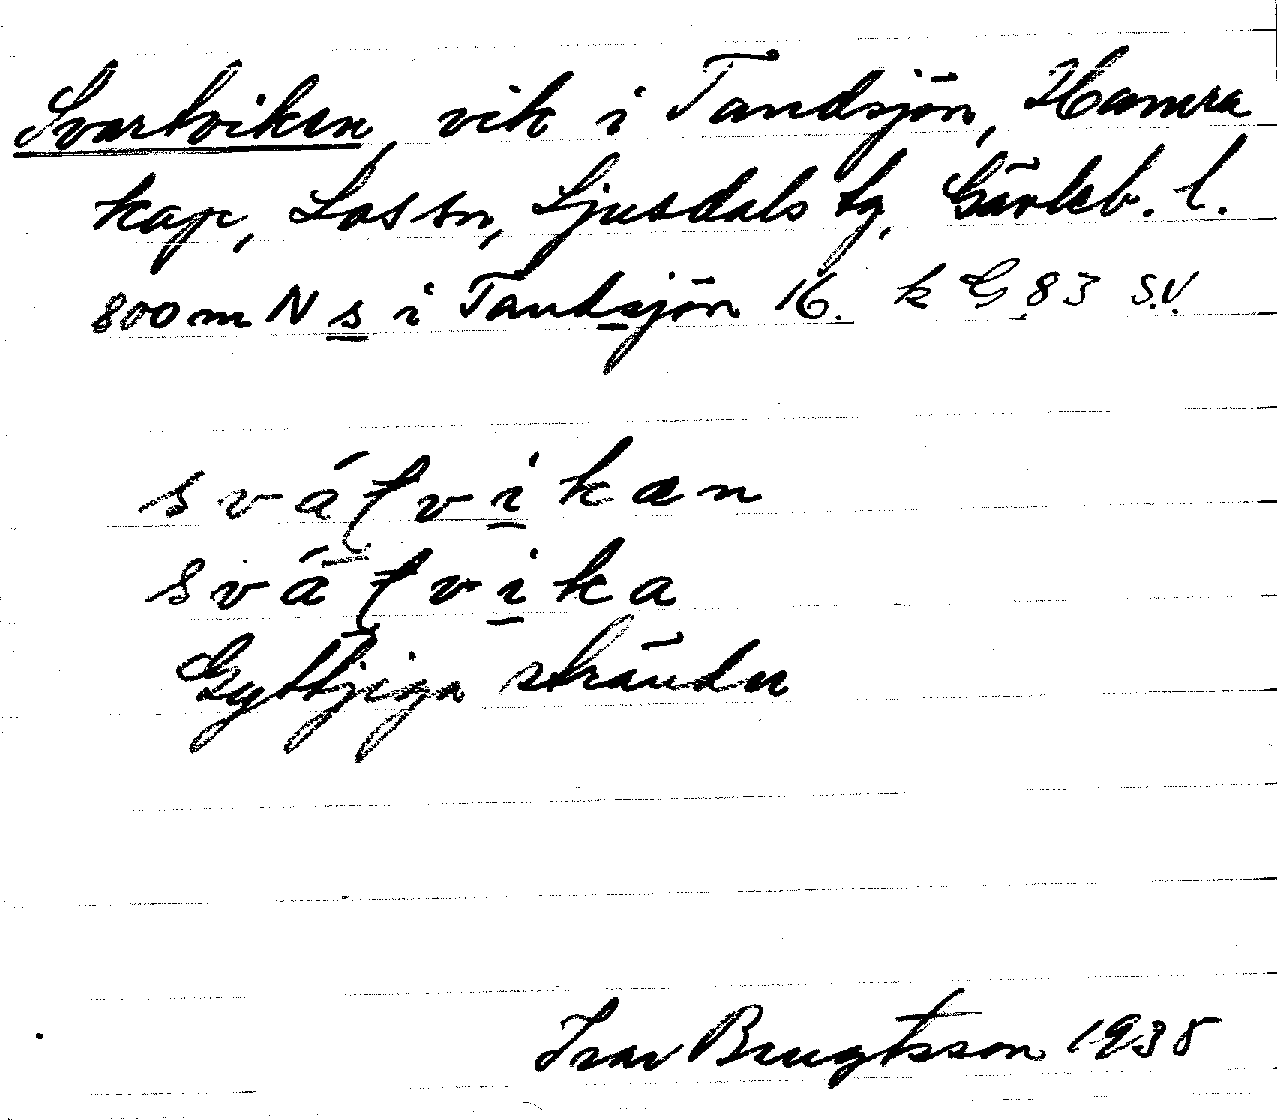 Svartviken, vik i Tandsjön, Hamra
kap, Los sn, Ljusdals tg, Gävleb. l.
800 m N s i Tandsjön 16. k G.83 S.V.
svát̨vikan
svát̨vika
Gyttjiga stränder
Ivar Bengtsson 1935